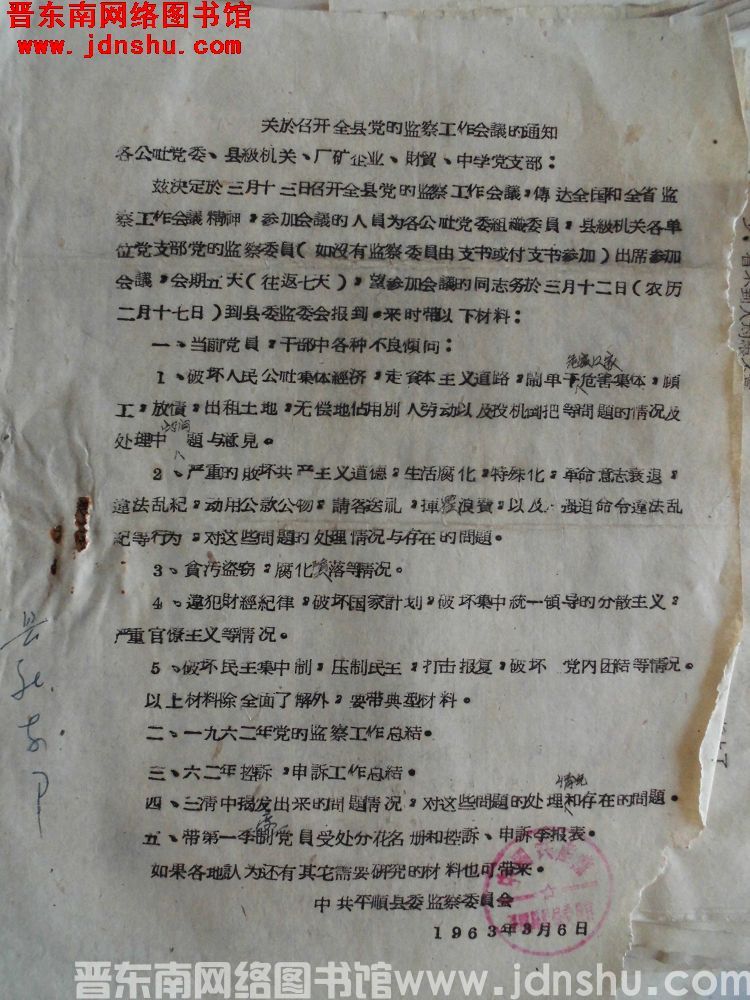 晋东南网络图书馆
www.jdnshu.com
关於召开全县党的监察工作会議的通知
各公社党委、县級机关、厂矿企业、財貿、中学党支部：
玆决定於三月十三日召开全县党的监察工作会議，傳达全国和全省监
察工作会議精神，参加会議的人員为各公社党委組織委員，县級机关各单
位党支部党的监察委員（如沒有监察委員由支书或付支书参加）出席参加
会議，会期五天（往返七天），望参加会議的同志务於三月十二日（农历
二月十七日）到县委监委会报到。来时带以下材料：
一、当前党員，干部中各种不良傾向：
1、破坏人民公社集体經济，走資本主义道路，鬧单干危害集体，顧
工，放債，出租土地，无偿地佔用別人劳动以及投机倒把等問題的情况及
处理中的問題与意見。
2、严重的敗坏共产主义道德，生活腐化，特殊化，革命意志衰退，
違法乱紀，动用公款公物，請客送礼，揮霍浪費，以及强迫命令違法乱
紀等行为，对这些問題的处理情况与存在的問題。
3、貪污盜窃，腐化墮落等情况。
4、違犯財經紀律，破坏国家計划，破坏集中統一領导的分散主义，
严重官僚主义等情况。
5、破坏民主集中制，压制民主，打击报复，破坏 党内团結等情况。
以上材料除全面了解外，要带典型材料。
二、一九六二年党的监察工作总結。
三、六二年控訴，申訴工作总結。
四、三清中揭发出来的問題情况，对这些問題的处理情况和存在的問題。
五、带第一季度制党員受处分花名册和控訴、申訴季报表。
如果各地認为还有其它需要研究的材料也可带来。
中共平順县委监察委員会
1963年3月6日
晋东南网络图书馆www.jdnshu.com